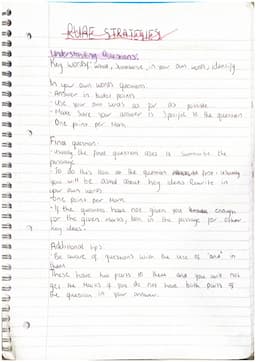 RUAE STRATEGIES
Understanding Questions:
Key words: summarise, in your own words, identify
In your own words questions:
- Answer in bullet points
- Use your own words as far as possible
- Make sure your answer is specific to the question
One point per mark
Final question:
- Usually the final question asks to summarise the
passage
- To do this look at the question usually
you will be asked about key ideas. Rewrite in
your own words
- one point per mark
- If the question have not given you enough
for the given marks, look in the passage for other
key ideas
Additional tips
- Be aware of questions with the use of 'and' in
them
These have two parts to them and you will not
get the marks if you do not have both parts of
the question in your answer.